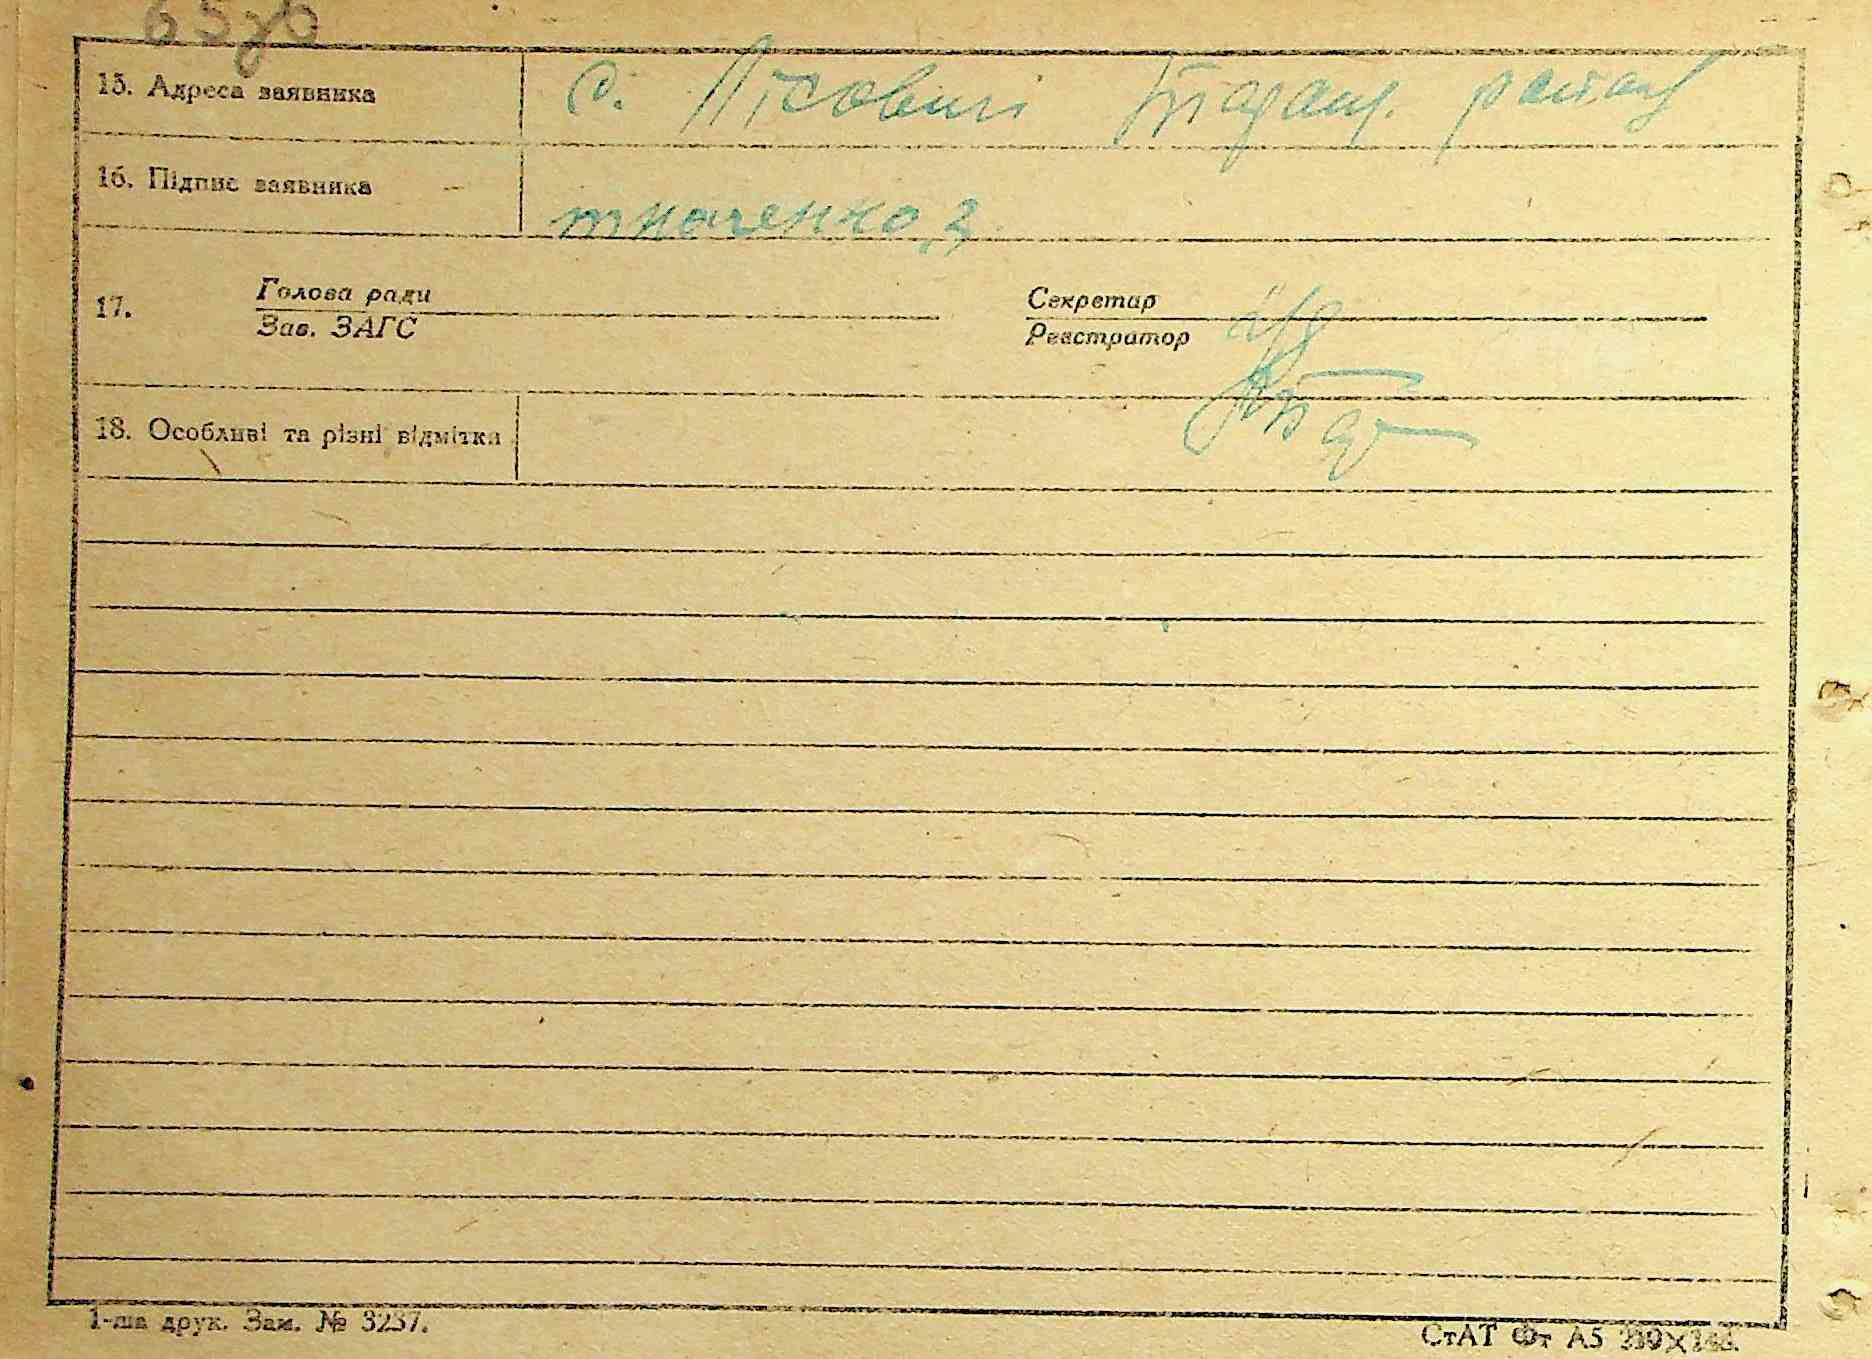 15. Адреса заявника с. Лісовичі Таращ. району
16. Підпис заявника ткаченко
17. Голова ради Секретар
Зав. ЗАГС Реєстратор
18. Особливі та різні відмітки
1-ша друк. Зам. № 3237.
СтАТ Фт А5 210×148.